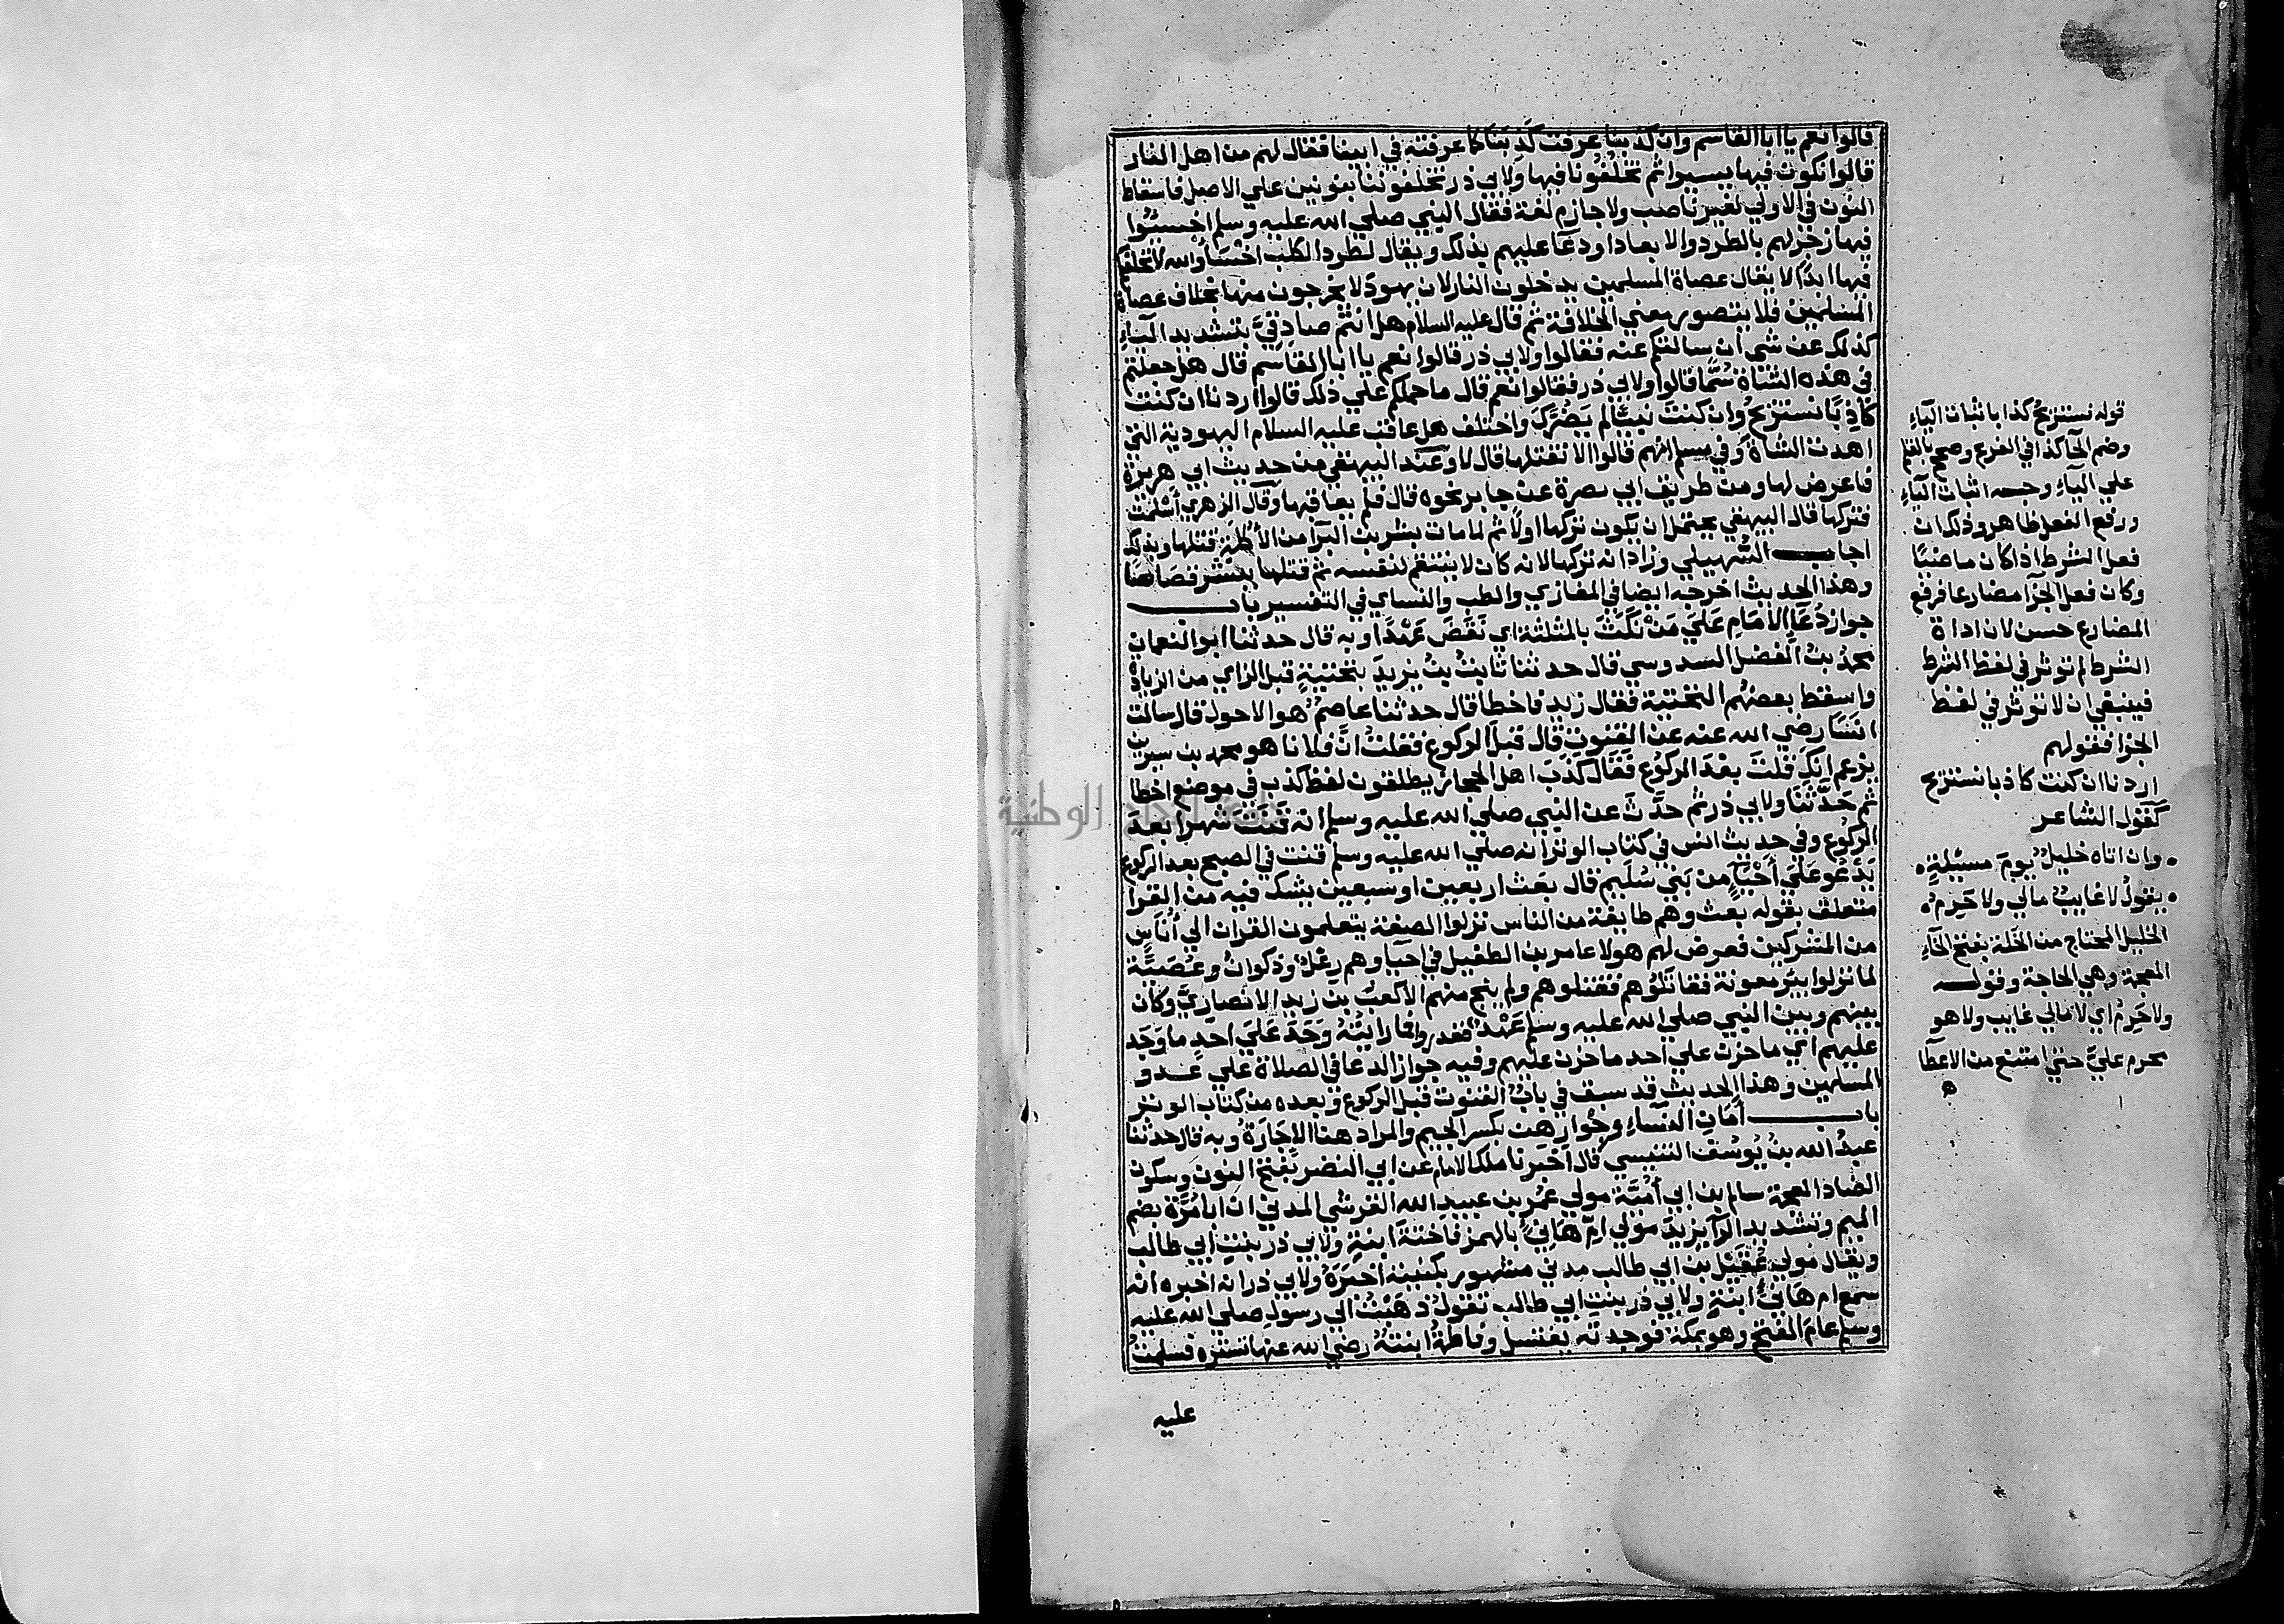 قالوا نعم يا ابا القاسم وان كذبنا عرفت كذبنا كما عرفته في ابينا فقال لهم من اهل النار
قالوا نكون فيها يسيرا ثم تخلفونا فيها ولابي ذر تخلفوننا بنونين علي الاصل فاسقاط
النون في الاولي لغير ناصب ولا جازم لغة فقال النبي صلي الله عليه وسلم اخسئوا
فيها زجر لهم بالطرد والابعاد او دعا عليهم بذلك ويقال لطرد الكلب اخسا والله لا نخلفكم
فيها ابدا لا يقال عصاة المسلمين يدخلون النار لان يهود لا يخرجون منها بخلاف عصاة
المسلمين فلا يتصور معني الخلافة ثم قال عليه السلام هل انتم صادقيّ بتشديد الياء
كذلك عن شي ان سالتكم عنه فقالوا ولابي ذر قالوا نعم يا ابا القاسم قال هل جعلتم
في هذه الشاة سُمّا قالوا ولابي ذر فقالوا نعم قال ما حملكم علي ذلك قالوا اردنا ان كنت
كاذبا نستريحُ وان كنت نبيا لم يضرك واختلف هل عاقب عليه السلام اليهودية التي
اهدت الشاة وفي مسلم انهم قالوا الا نقتلها قال لا وعند البيهقي من حديث ابي هريرة
فاعرض لها ومن طريق ابي نصرة عن جابر نحوه قال فلم يعاقبها وقال الزهري اسلمت
فتركها قال البيهقي يحتمل ان يكون تركها اولا ثم لما مات بشر بن البرآ من الأكلة قتلها وبذلك
اجاب السُّهيلي وزاد انه تركها لانه كان لا ينتقم لنفسه ثم قتلها ببشر قصاصا
وهذا الحديث اخرجه ايضا في المغازي والطب والنساي في التفسير باب
جواز دُعَآ الامام عَلي مَن نَكَثَ بالمثلثة اي نَقَضَ عَهْدًا وبه قال حدثنا ابو النعمان
محمد بن الفضل السدوسي قال حدثنا ثابتُ بنُ يزيدَ بتحتيةٍ قبل الزاي من الزيادة
واسقط بعضهُم التحتية فقال زيد فاخطا قال حدثنا عاصمٌ هو الاحول قال سالت
انَسًا رضي الله عنه عن القنوتِ قال قبلَ الركوع فقلتُ انَّ فلانا هو محمد بن سيرين
يزعم انكَ قلتَ بعْدَ الركوُع فقَال كذبَ اهل الحجاز يطلقون لفظ كذب في موضع اخطا
ثم حَدَّثَنَا ولابي ذر ثم حدَّثَ عن النبي صلي الله عليه وسلم انه قَنَتَ شهرا بعدَ
الركوُع وفي حديث انس في كتاب الوتر انه صلي الله عليه وسلم قنت في الصبح بعد الركوع
يَدْعُو عَلَي أَحْيَآءٍ من بَني سُلَيم قال بعَث اربعين او سبعين يشك فيه من القرا
متعلق بقوله بعث وهم طايفة من الناس نزلوا الصفة يتعلمون القران الي أُنَاسٍ
من المشركين فعرض لهم هولا عامر بن الطفيل في احيا وهم رِعْلٌ وذكوانُ وعُصَيّة
لما نزلوا بير معونة فقاتلُوهم فقتلوهم ولم ينج منهم الا كعبُ بن زيد الانصاريّ وكان
بينهم وبين النبي صلي الله عليه وسلم عَهْدٌ فغدروا فما رايتُهُ وَجَدَ عَلَي احدٍ ما وَجَد
عليهم اي ما حزن علي احد ما حزن عليهم وفيه جواز الدعا في الصلاة علي عدو
المسلمين وهذا الحديث قد سبق في باب القنوت قبل الركوع وبعده من كتاب الوتر
باب أمَانِ النسَاءِ وجُوارهن بكسر الجيم والمراد هنا الاجَارَة وبه قال حدثنا
عبدُ الله بنُ يُوسُف التنيسي قال اخبرنا ملك الامام عن ابي النضر بفتح النون وسكون
الضاد المعجمة سالم بن ابي أمَيَّة مولي عُمَر بن عبيد الله القرشي المدني ان ابا مُرَّة بضم
الميم وتشديد الرآ يزيدَ مَولي امِّ هَانِيءٍ بالهمز فاختة ابنةِ ولابي ذر بنتِ ابي طالب
ويقال مولي عَقيْل بن ابي طالب مدني مشهور بكنيته اخبَرَهُ ولابي ذر انه اخبره انه
سمع ام هانِيءٍ ابنةِ ولابي ذر بنتِ ابي طالب تقولُ ذهَبْتُ الي رسولِ صلي الله عليه
وسلم عامَ الفتح وهو بمكة فوجدته يغتسل وفاطمةُ ابنتهُ رضي الله عنها تستره فسلمتُ
عليه
قوله نستريحُ كذا باثبات اليآء
وضم الحآ كذا في الفرع وصحح بالقلم
علي اليآء وجه اثبات اليآء
ورفع الفعل ظاهر وذلك ان
فعل الشرط اذا كان ماضيًا
وكان فعل الجزآ مضارعا فرفع
المضارع حسن لان اداة
الشرط لم توثر في لفظ الشرط
فينبغي ان لا توثر في لفظ
الجزا فقولهم
اردنا ان كنت كاذبا نستريح
كقول الشاعر
وان اتاه خليلٌ يومَ مسيلةٍ
يقولُ لا غايبٌ مالي ولا حَرِمُ
الخليل المحتاج من الخَلة بفتح الخآء
المعجمة وهي الحاجة وقوله
ولا حَرِمُ اي لا مالي غايب ولا هو
محرم عليّ حتي امتنع من الاعطآ
جامعة النجاح الوطنية